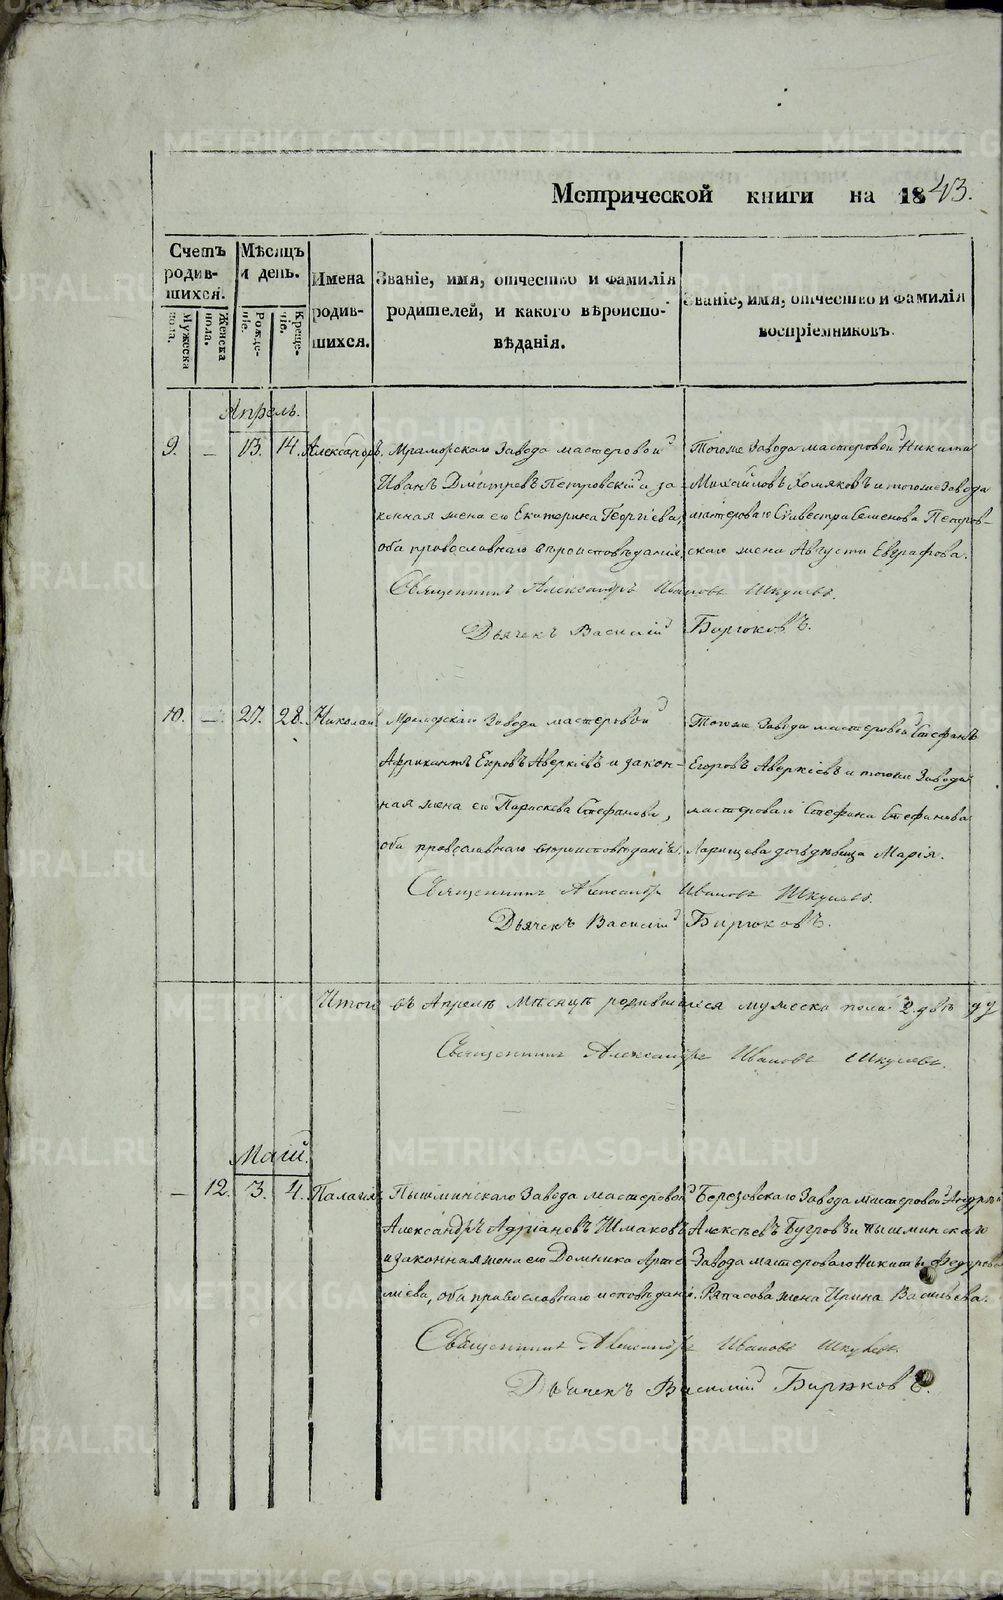 Метрической книги на 1843.
Счетъ родив-шихся.
Мужеска пола.
Женска пола.
Мѣсяцъ и день.
Рожде-ніе.
Креще-ніе.
Имена родив-шихся.
Званіе, имя, отчество и фамилія
родителей, и какого вѣроиспо-
вѣданія.
Званіе, имя, отчество и фамилія
воспріемниковъ.
Апрель.
9. — 13. 14. Александръ.
Мраморскаго Завода мастеровой
Иванъ Дмитревъ Петровскій и за
конная жена его Екатерина Георгіева,
оба православнаго вѣроисповѣданія.
Тогоже Завода мастеровой Никита
Михайловъ Хомяковъ и тогоже Завода
мастероваго Сильвестра Семенова Петров-
скаго жена Августа Евграфова.
Священникъ Александръ Ивановъ Шкулевъ.
Дьячекъ Василій Бирюковъ.
10. — 27. 28. Николай
Мраморскаго Завода мастеровой
Африкантъ Егоровъ Аверкіевъ и закон-
ная жена его Параскева Стефанова,
оба православнаго вѣроисповѣданія.
Тогоже Завода мастеровой Стефанъ
Егоровъ Аверкіевъ и тогоже Завода
мастероваго Стефана Стефанова
дочь дѣвица Марія.
Священникъ Александръ Ивановъ Шкулевъ.
Дьячекъ Василій Бирюковъ.
Итого въ Апрелѣ мѣсяцѣ родившихся мужеска пола 2. двѣ ду
Священникъ Александръ Ивановъ Шкулевъ.
Маій.
— 12. 3. 4. Палагія
Пышминскаго Завода мастеровой
Александръ Адріановъ Шмаковъ
и законная жена его Домника Арте-
міева, оба православнаго исповѣданія.
Березовскаго Завода мастеровой Андрей
Алексѣевъ Бугровъ и Пышминскаго
Завода мастероваго Никиты Федорова
жена Ирина Васильева.
Священникъ Александръ Ивановъ Шкулевъ.
Дьячекъ Василій Бирюковъ.
METRIKI.GASO-URAL.RU